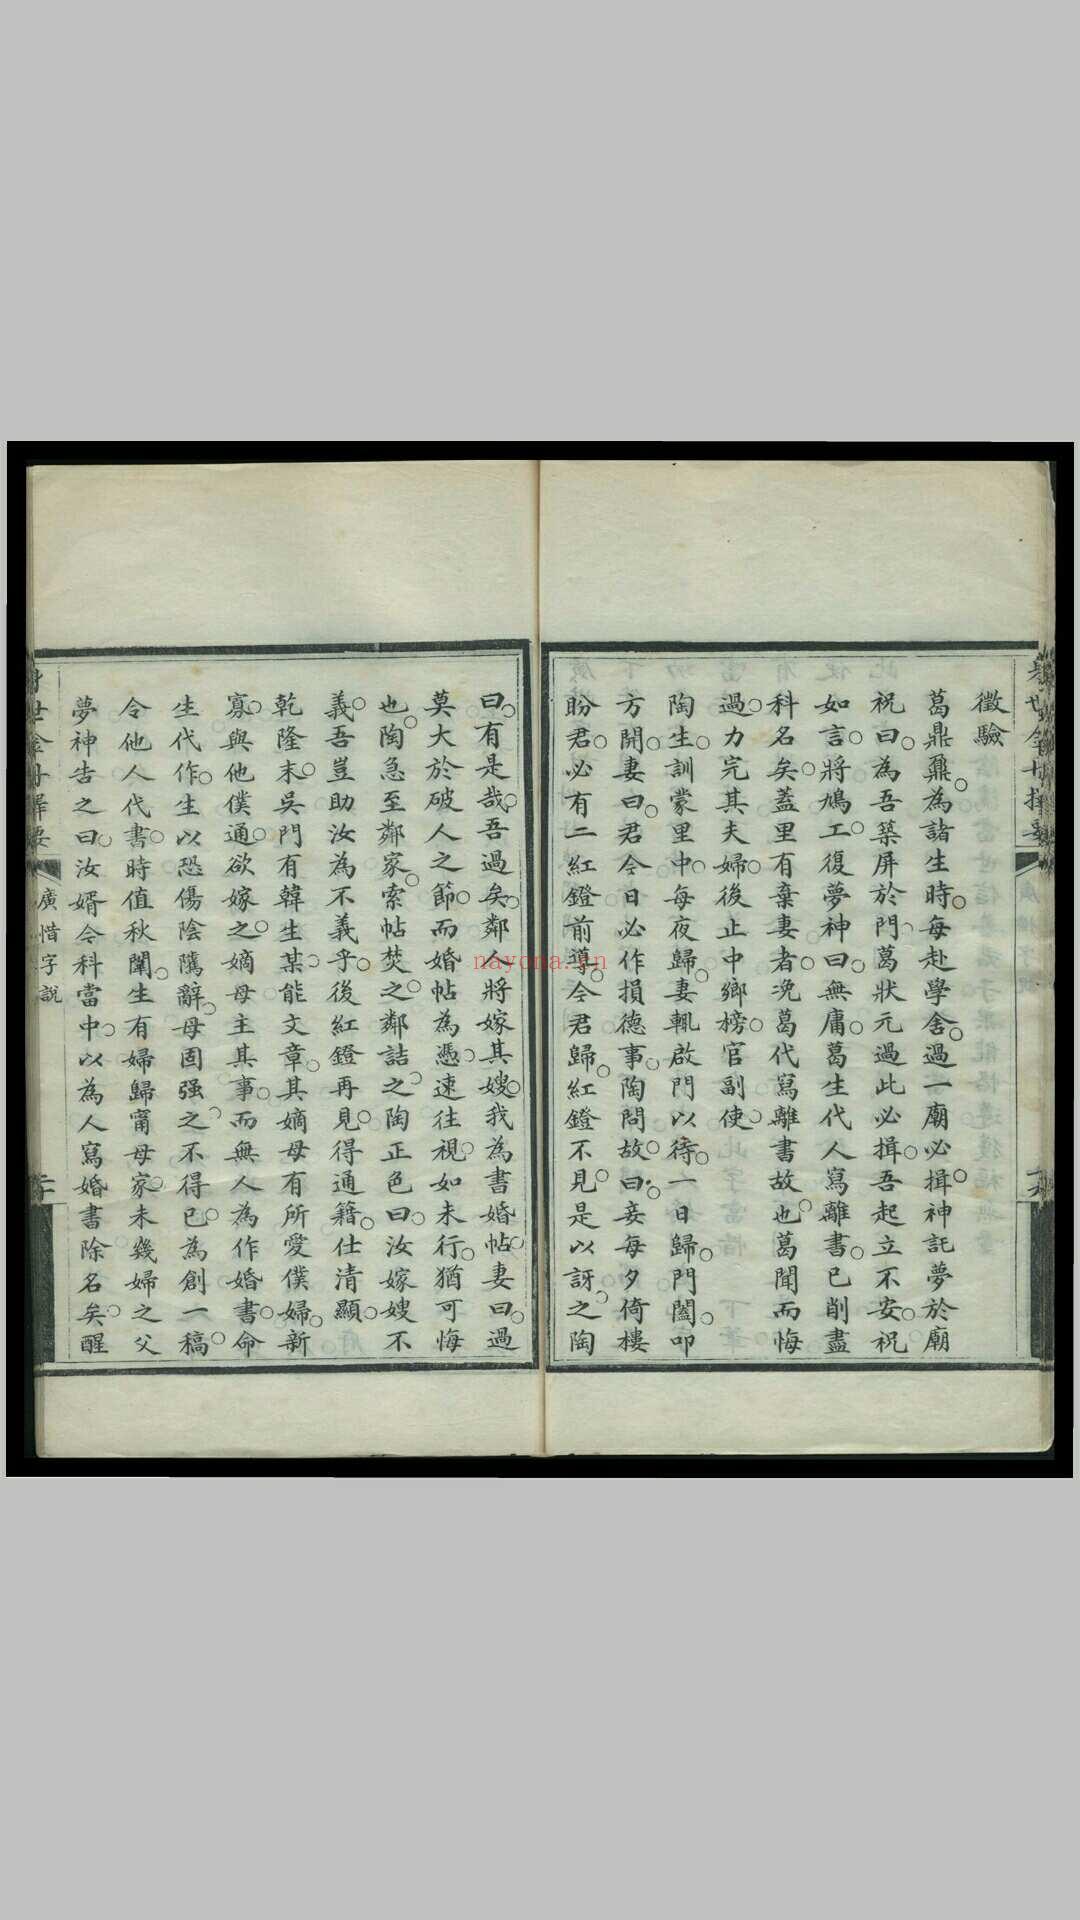 徵驗
葛鼎鼐。為諸生時。每赴學舍。過一廟必揖。神託夢於廟
祝曰。為吾築屏於門。葛狀元過此必揖。吾起立不安。祝
如言。將鳩工。復夢神曰。無庸。葛生代人寫離書。已削盡
科名矣。蓋里有棄妻者。浼葛代寫離書故也。葛聞而悔
過。力完其夫婦。後止中鄉榜。官副使。
陶生。訓蒙里中。每夜歸。妻輒啟門以待。一日歸。門闔。叩
方開。妻曰。君今日必作損德事。陶問故。曰。妾每夕倚樓
盼君。必有二紅鐙前導。今君歸。紅鐙不見。是以訝之。陶
曰。有是哉。吾過矣。鄰人將嫁其嫂。我為書婚帖。妻曰。過
莫大於破人之節。而婚帖為憑。速往視。如未行。猶可悔
也。陶急至鄰家。索帖焚之。鄰詰之。陶正色曰。汝嫁嫂不
義。吾豈助汝為不義乎。後紅鐙再見。得通籍。仕清顯。
乾隆末。吳門有韓生某。能文章。其嫡母有所愛僕婦。新
寡。與他僕通。欲嫁之。嫡母主其事。而無人為作婚書。命
生代作。生以恐傷陰隲辭。母固强之。不得已。為創一稿。
令他人代書。時值秋闈。生有婦歸甯母家。未幾婦之父
夢神告之曰。汝婿今科當中。以為人寫婚書除名矣。醒
廣惜字說